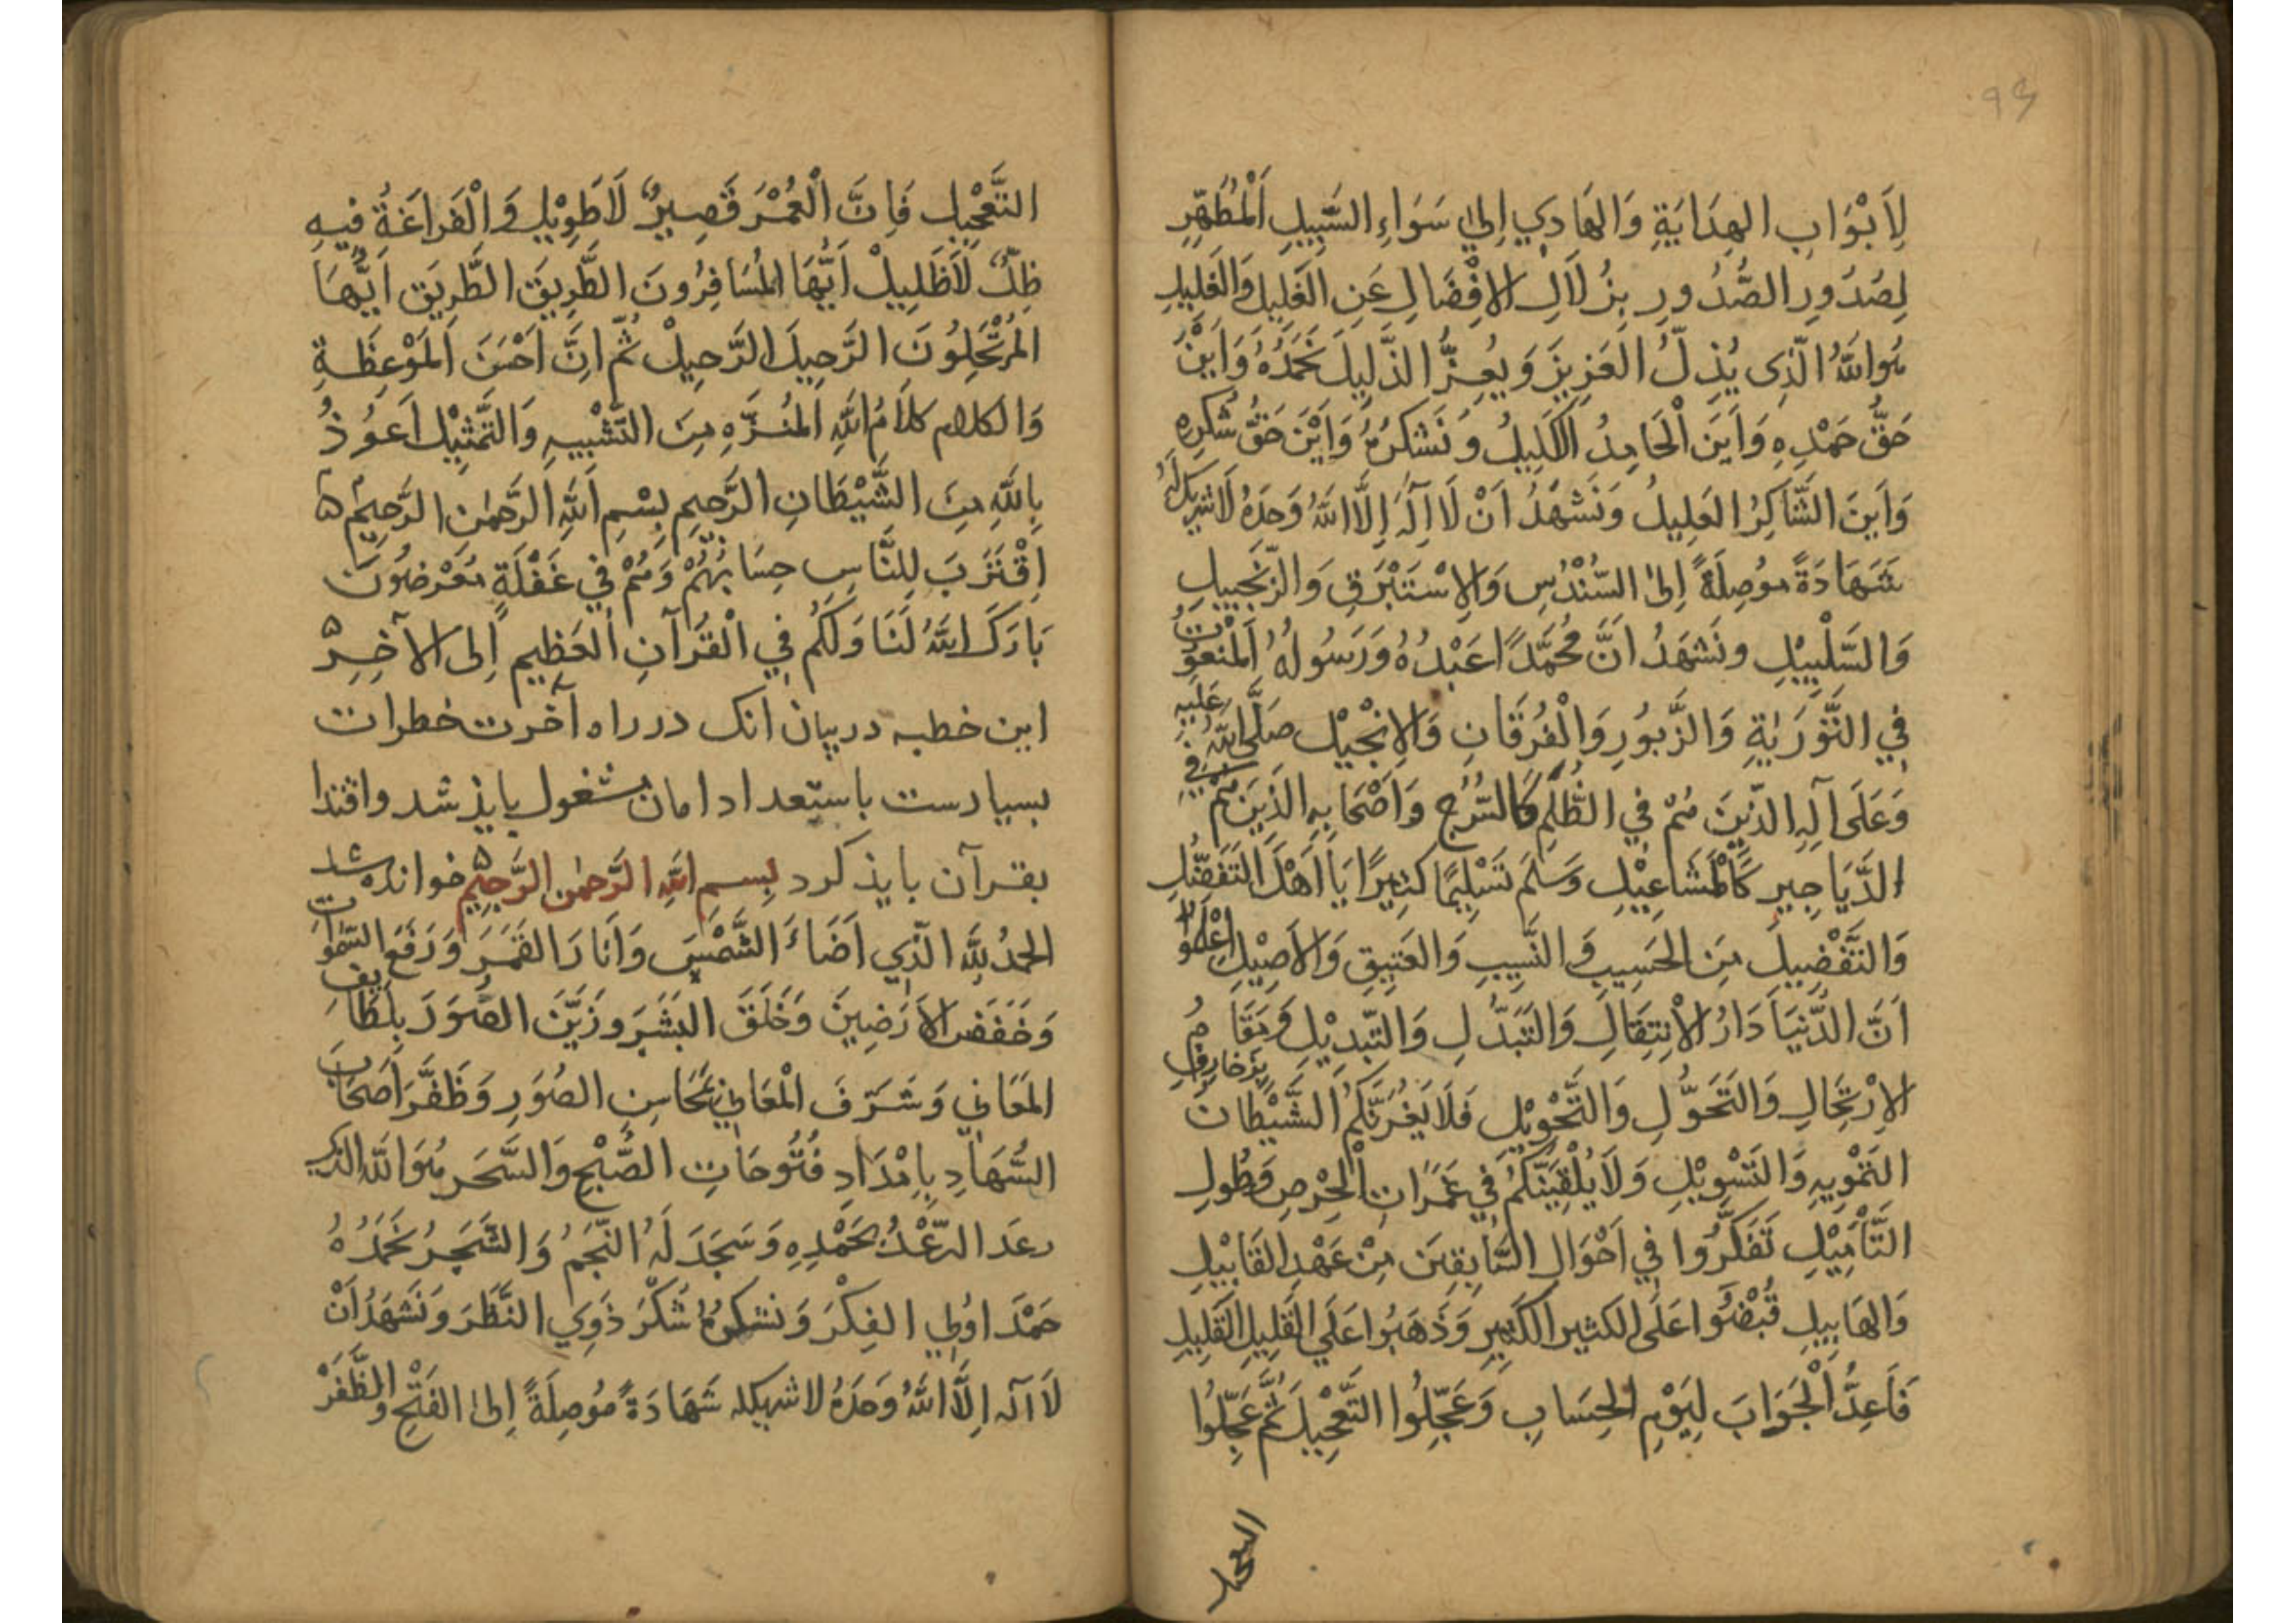 ٩٤
لِاَبْوَابِ الهِدَايَةِ وَالهَادِي اِلىٰ سَوَاءِ السَّبِيلِ اَلْمُطَهِّرِ
لِصُدُورِ الصُّدُورِ بِزُلَالِ الاِفْضَالِ عَنِ الغَلِيلِ وَالغَلِيلِ
هُوَ اللهُ الَّذِى يُذِلُّ العَزِيزَ وَيُعِزُّ الذَّلِيلَ نَحْمَدُهُ وَاَيْنَ
حَقُّ حَمْدِهِ وَاَيْنَ الْحَامِدُ الْكَلِيلُ وَنَشْكُرُهُ وَاَيْنَ حَقُّ شُكْرِهِ
وَاَيْنَ الشَّاكِرُ العَلِيلُ وَنَشْهَدُ اَنْ لَا اِلٰهَ اِلَّا اللهُ وَحْدَهُ لَا شَرِيكَ لَهُ
شَهَادَةً مُوصِلَةً اِلىٰ السُّنْدُسِ وَالاِسْتَبْرَقِ وَالزَّنْجَبِيلِ
وَالسَّلْبِيْلِ وَنَشْهَدُ اَنَّ مُحَمَّدًا عَبْدُهُ وَرَسُولُهُ اَلْمَنْعُوتُ
فِي التَّوْرٰيةِ وَالزَّبُورِ وَالْفُرْقَانِ وَالاِنْجِيْلِ صَلَّى اللهُ عَلَيْهِ
وَعَلَى آلِهِ الَّذِيْنَ هُمْ فِي الظُّلَمِ كَالسُّرُجِ وَاَصْحَابِهِ الَّذِيْنَ هُمْ فِي
الدَّيَاجِيرِ كَالْمَشَاعِيْلِ وَسَلَّمَ تَسْلِيْمًا كَثِيرًا يَا اَهْلَ التَّفَضُّلِ
وَالتَّفْضِيلِ مِنَ الحَسِيبِ وَالنَّسِيبِ وَالعَتِيقِ وَالاَصِيْلِ اِعْلَمُوْا
اَنَّ الدُّنْيَا دَارُ الاْنْتِقَالِ وَالتَّبَدُّلِ وَالتَّبْدِيْلِ وَمَقَامُ
الاِرْتِحَالِ وَالتَّحَوُّلِ وَالتَّحْوِيْلِ فَلَا يَغُرَّنَّكُمُ الشَّيْطَانُ بِزَخَارِفِ
التَمْوِيهِ وَالتَسْوِيْلِ وَلَا يُلْقِيَنَّكُمْ فِي غَمَرَاتِ الْحِرْصِ وَطُولِ
التَّأْمِيْلِ تَفَكَّرُوا فِي اَحْوَالِ السَّابِقِيْنَ مِنْ عَهْدِ القَابِيْلِ
وَالهَابِيلِ قُبِضُوْا عَلَى الكَثِيرِ الكَثِيرِ وَذَهَبُوا عَلَى القَلِيلِ القَلِيلِ
فَاَعِدُّ الْجَوَابَ لِيَوْمِ الحِسَابِ وَعَجِّلُوا التَّعْجِيْلَ ثُمَّ عَجِّلُوا
التعجيل
التَّعْجِيْلِ فَاِنَّ الْعُمْرَ قَصِيرٌ لَا طَوِيْلٌ وَالْفَرَاغَةُ فِيهِ
ظِلٌّ لَا ظَلِيلْ اَيُّهَا المُسَافِرُونَ الطَّرِيقَ الطَّرِيقَ اَيُّهَا
المُرْتَحِلُونَ الرَّحِيلَ الرَّحِيلْ ثُمَّ اِنَّ اَحْسَنَ الْمَوْعِظَةِ
وَالكلام كَلَامُ اللهِ المُنَزَّهِ مِنَ التَّشْبِيهِ وَالتَّمْثِيْلِ اَعُوذُ
بِاللهِ مِنَ الشَّيْطَانِ الرَّجِيمِ بِسْمِ اللهِ الرَّحْمٰنِ الرَّحِيْمِ
اِقْتَرَبَ لِلنَّاسِ حِسَابُهُمْ وَهُمْ فِي غَفْلَةٍ مُعْرِضُونَ
بَارَكَ اللهُ لَنَا وَلَكُمْ فِي الْقُرآنِ الْعَظِيمِ اِلى الآخِرِ
اين خطبه دربيان انک در راه آخرت خطرات
بسيارست باستعداد امان مشغول بايذ شد واقتدا
بقرآن بايذ كرد بِسمِ اللهِ الرَّحمٰنِ الرَّحِيْمِ خوانده شد
الحمدُ لِلّهِ الَّذِي اَضَاءَ الشَّمْسَ وَاَنَارَ القَمَرَ وَرَفَعَ السَّمٰوَاتِ
وَخَفَضَ الاَرَضِينَ وَخَلَقَ البَشَرَ وَزَيَّنَ الصُّوَرَ بِلَطَايِفِ
المَعَانِي وَشَرَّفَ الْمَعَانِيَ بِمَحَاسِنِ الصُوَرِ وَظَفَّرَ اَصحَابَ
السُّهَادِ بِاِمْدَادِ فُتُوحَاتِ الصُّبْحِ وَالسَّحَرِ هُوَ اللهُ الذي
رعَدَ الرَّعْدُ بِحَمْدِهِ وَسَجَدَ لَهُ النَّجَمُ وَالشَّجَرُ نَحْمَدُهُ
حَمْدَ اوُلِي الفِكْرَ وَنشكُرُهُ شُكْرَ ذَوِي النَّظَرَ وَنَشهَدُ اَنْ
لَا آله اِلَّا اللهُ وَحدَهُ لا شريكله شَهَادَةً مُوصِلَةً اِلىٰ الفَتْحِ وَالظَّفَرْ